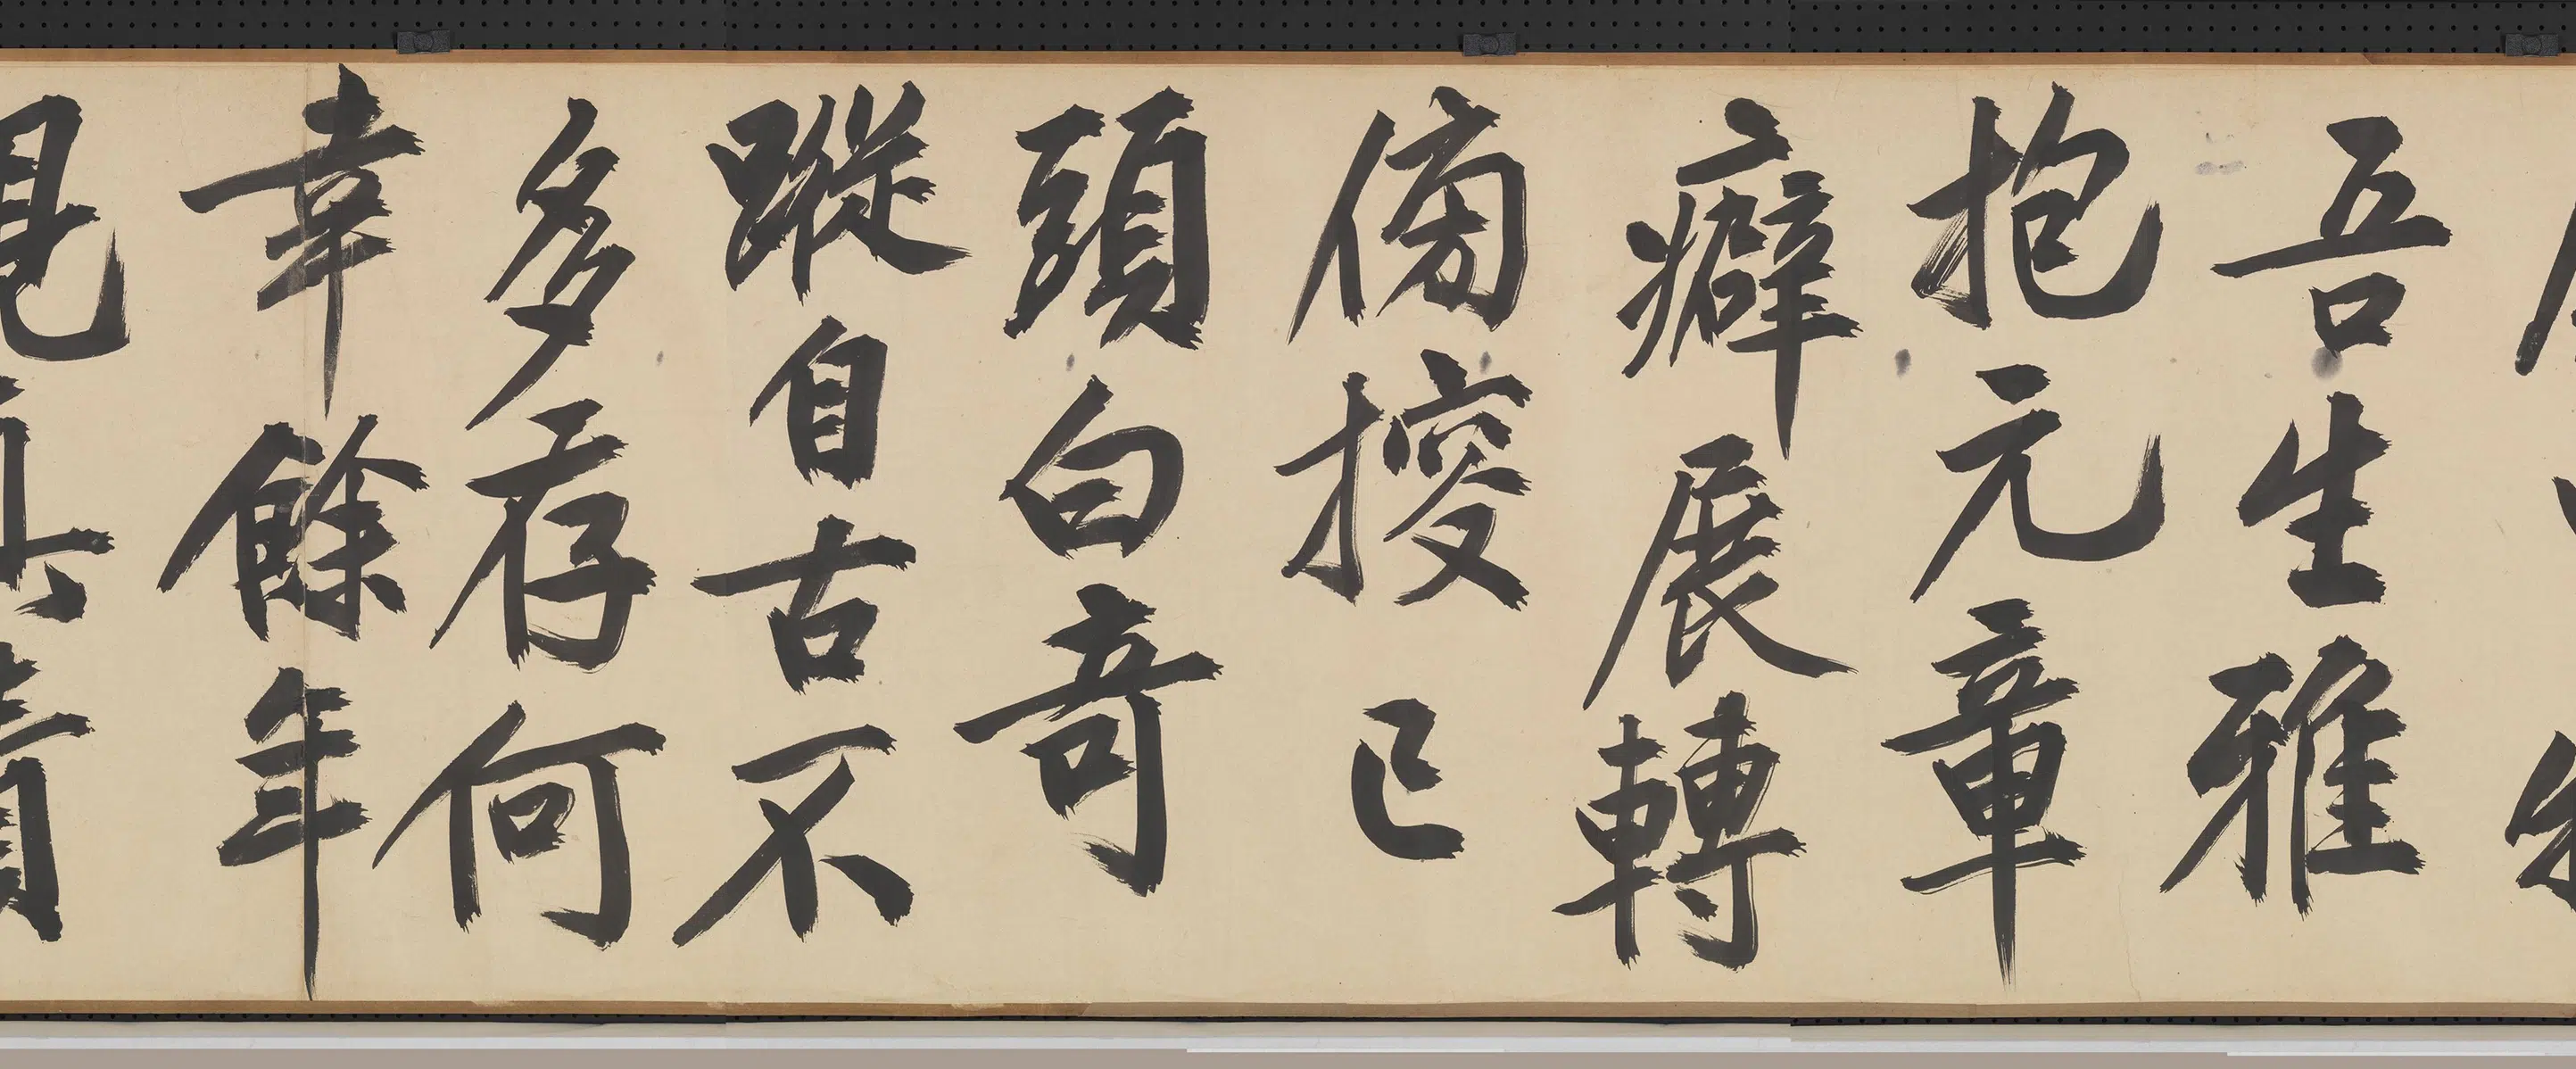 吾生雅
抱元章
癖展轉
傍搜已
頭白奇
蹤自古不
多存何
幸餘年
見真